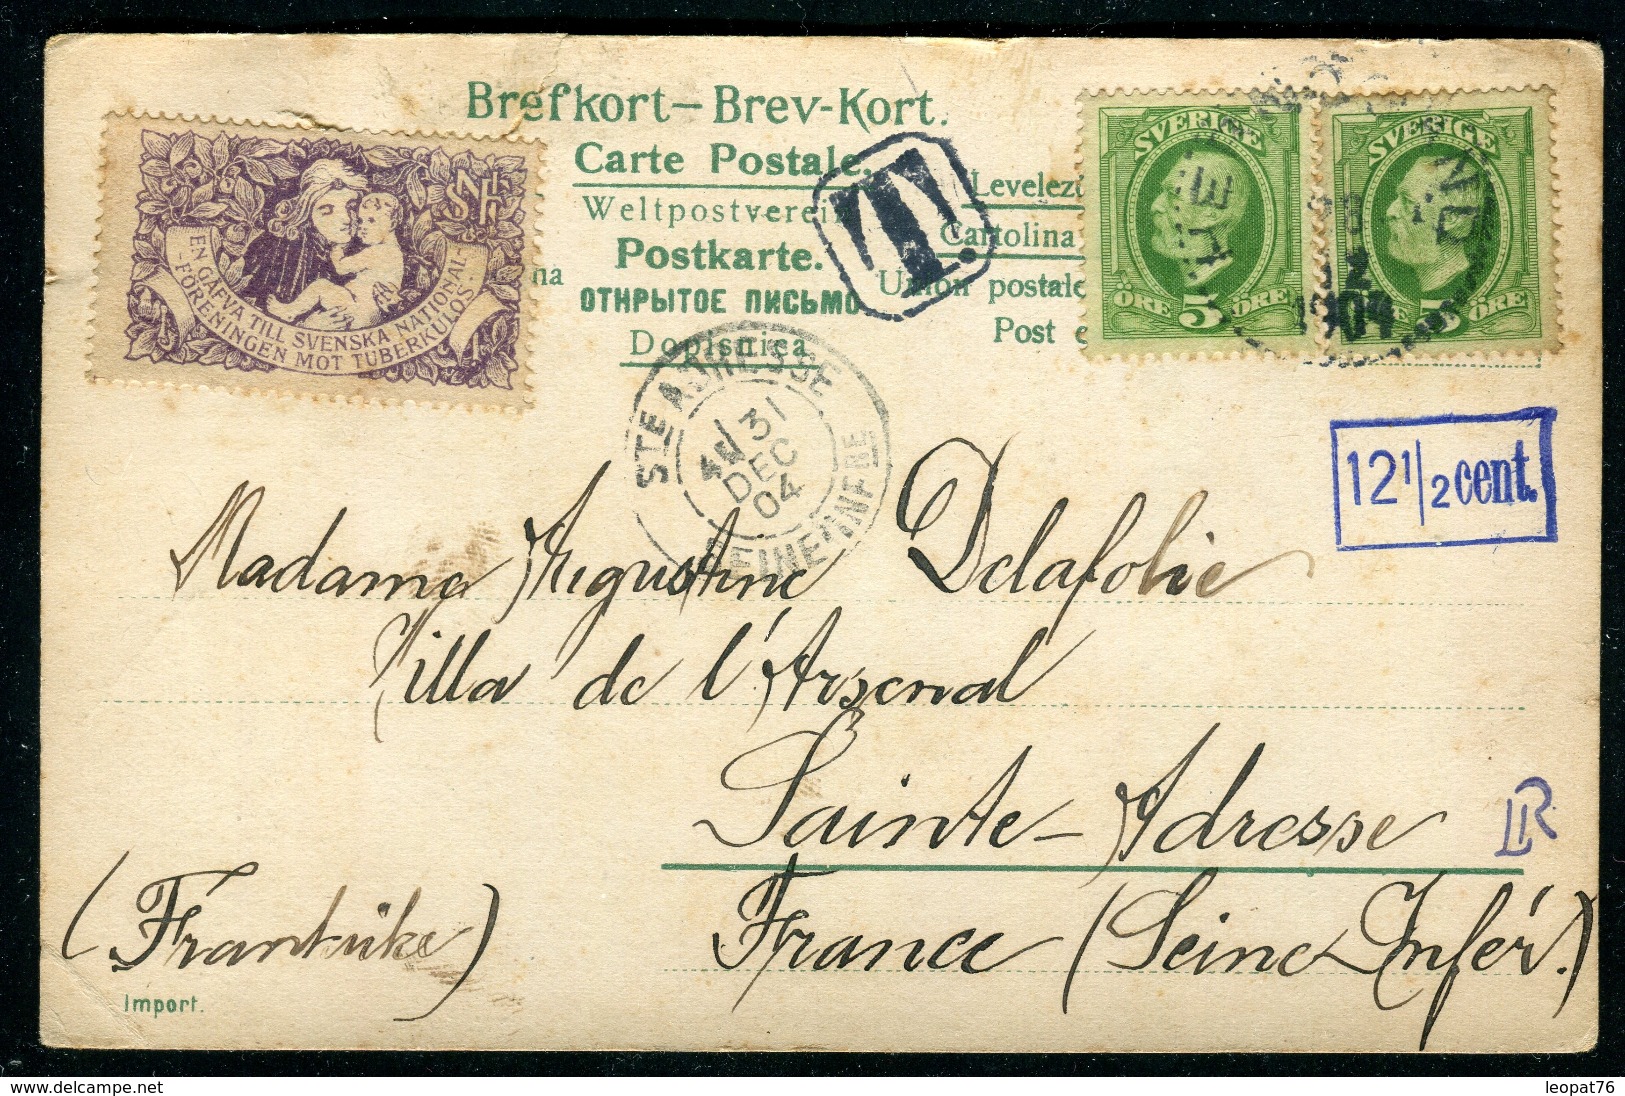 Brefkort – Brev-Kort.
Carte Postale.
Weltpostverein
Postkarte.
ОТКРЫТОЕ ПИСЬМО
Dopisnica
na
Cartolina
Union postale
Post
EN GÅFVA TILL SVENSKA NATIONAL-
-FÖRENINGEN MOT TUBERKULOS.
T.
SVERIGE
5
ÖRE ÖRE
SVERIGE
5
ÖRE ÖRE
1904
STE ADRESSE
31
DEC
04
SEINE INFRE
12 1/2 cent.
Madame Augustine Delafolie
Villa de l'Arsenal
Sainte-Adresse
France (Seine Infér.)
(Frankrike)
Import.
leopat76